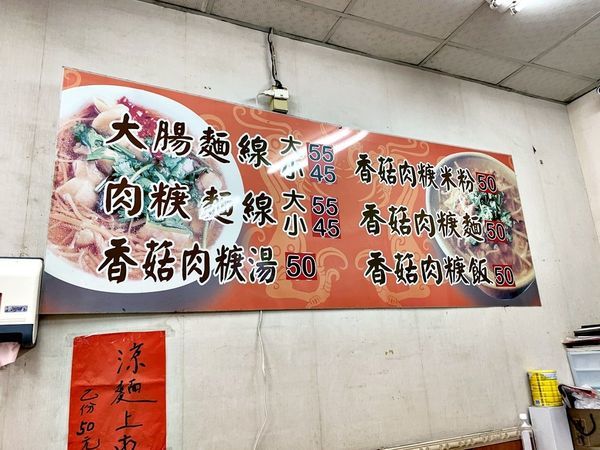 大腸麵線 大55 小45
肉羹麵線 大55 小45
香菇肉羹湯 50
香菇肉羹米粉 50
香菇肉羹麵 50
香菇肉羹飯 50
涼麵上市
乙份50元